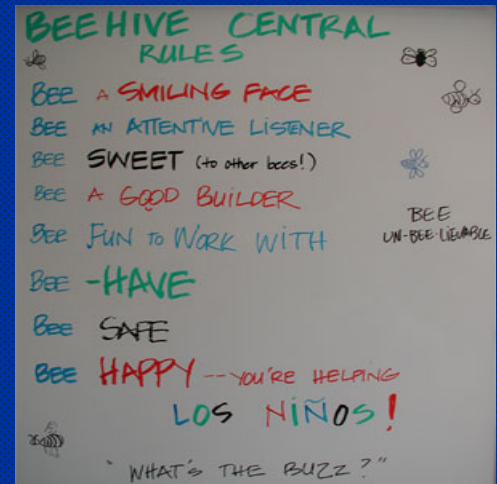 BEEHIVE CENTRAL
RULES
BEE A SMILING FACE
BEE AN ATTENTIVE LISTENER
BEE SWEET (to other bees!)
BEE A GOOD BUILDER
BEE FUN TO WORK WITH
BEE
UN-BEE-LIEVABLE
BEE -HAVE
BEE SAFE
BEE HAPPY -- YOU'RE HELPING
LOS NIÑOS!
"WHAT'S THE BUZZ?"